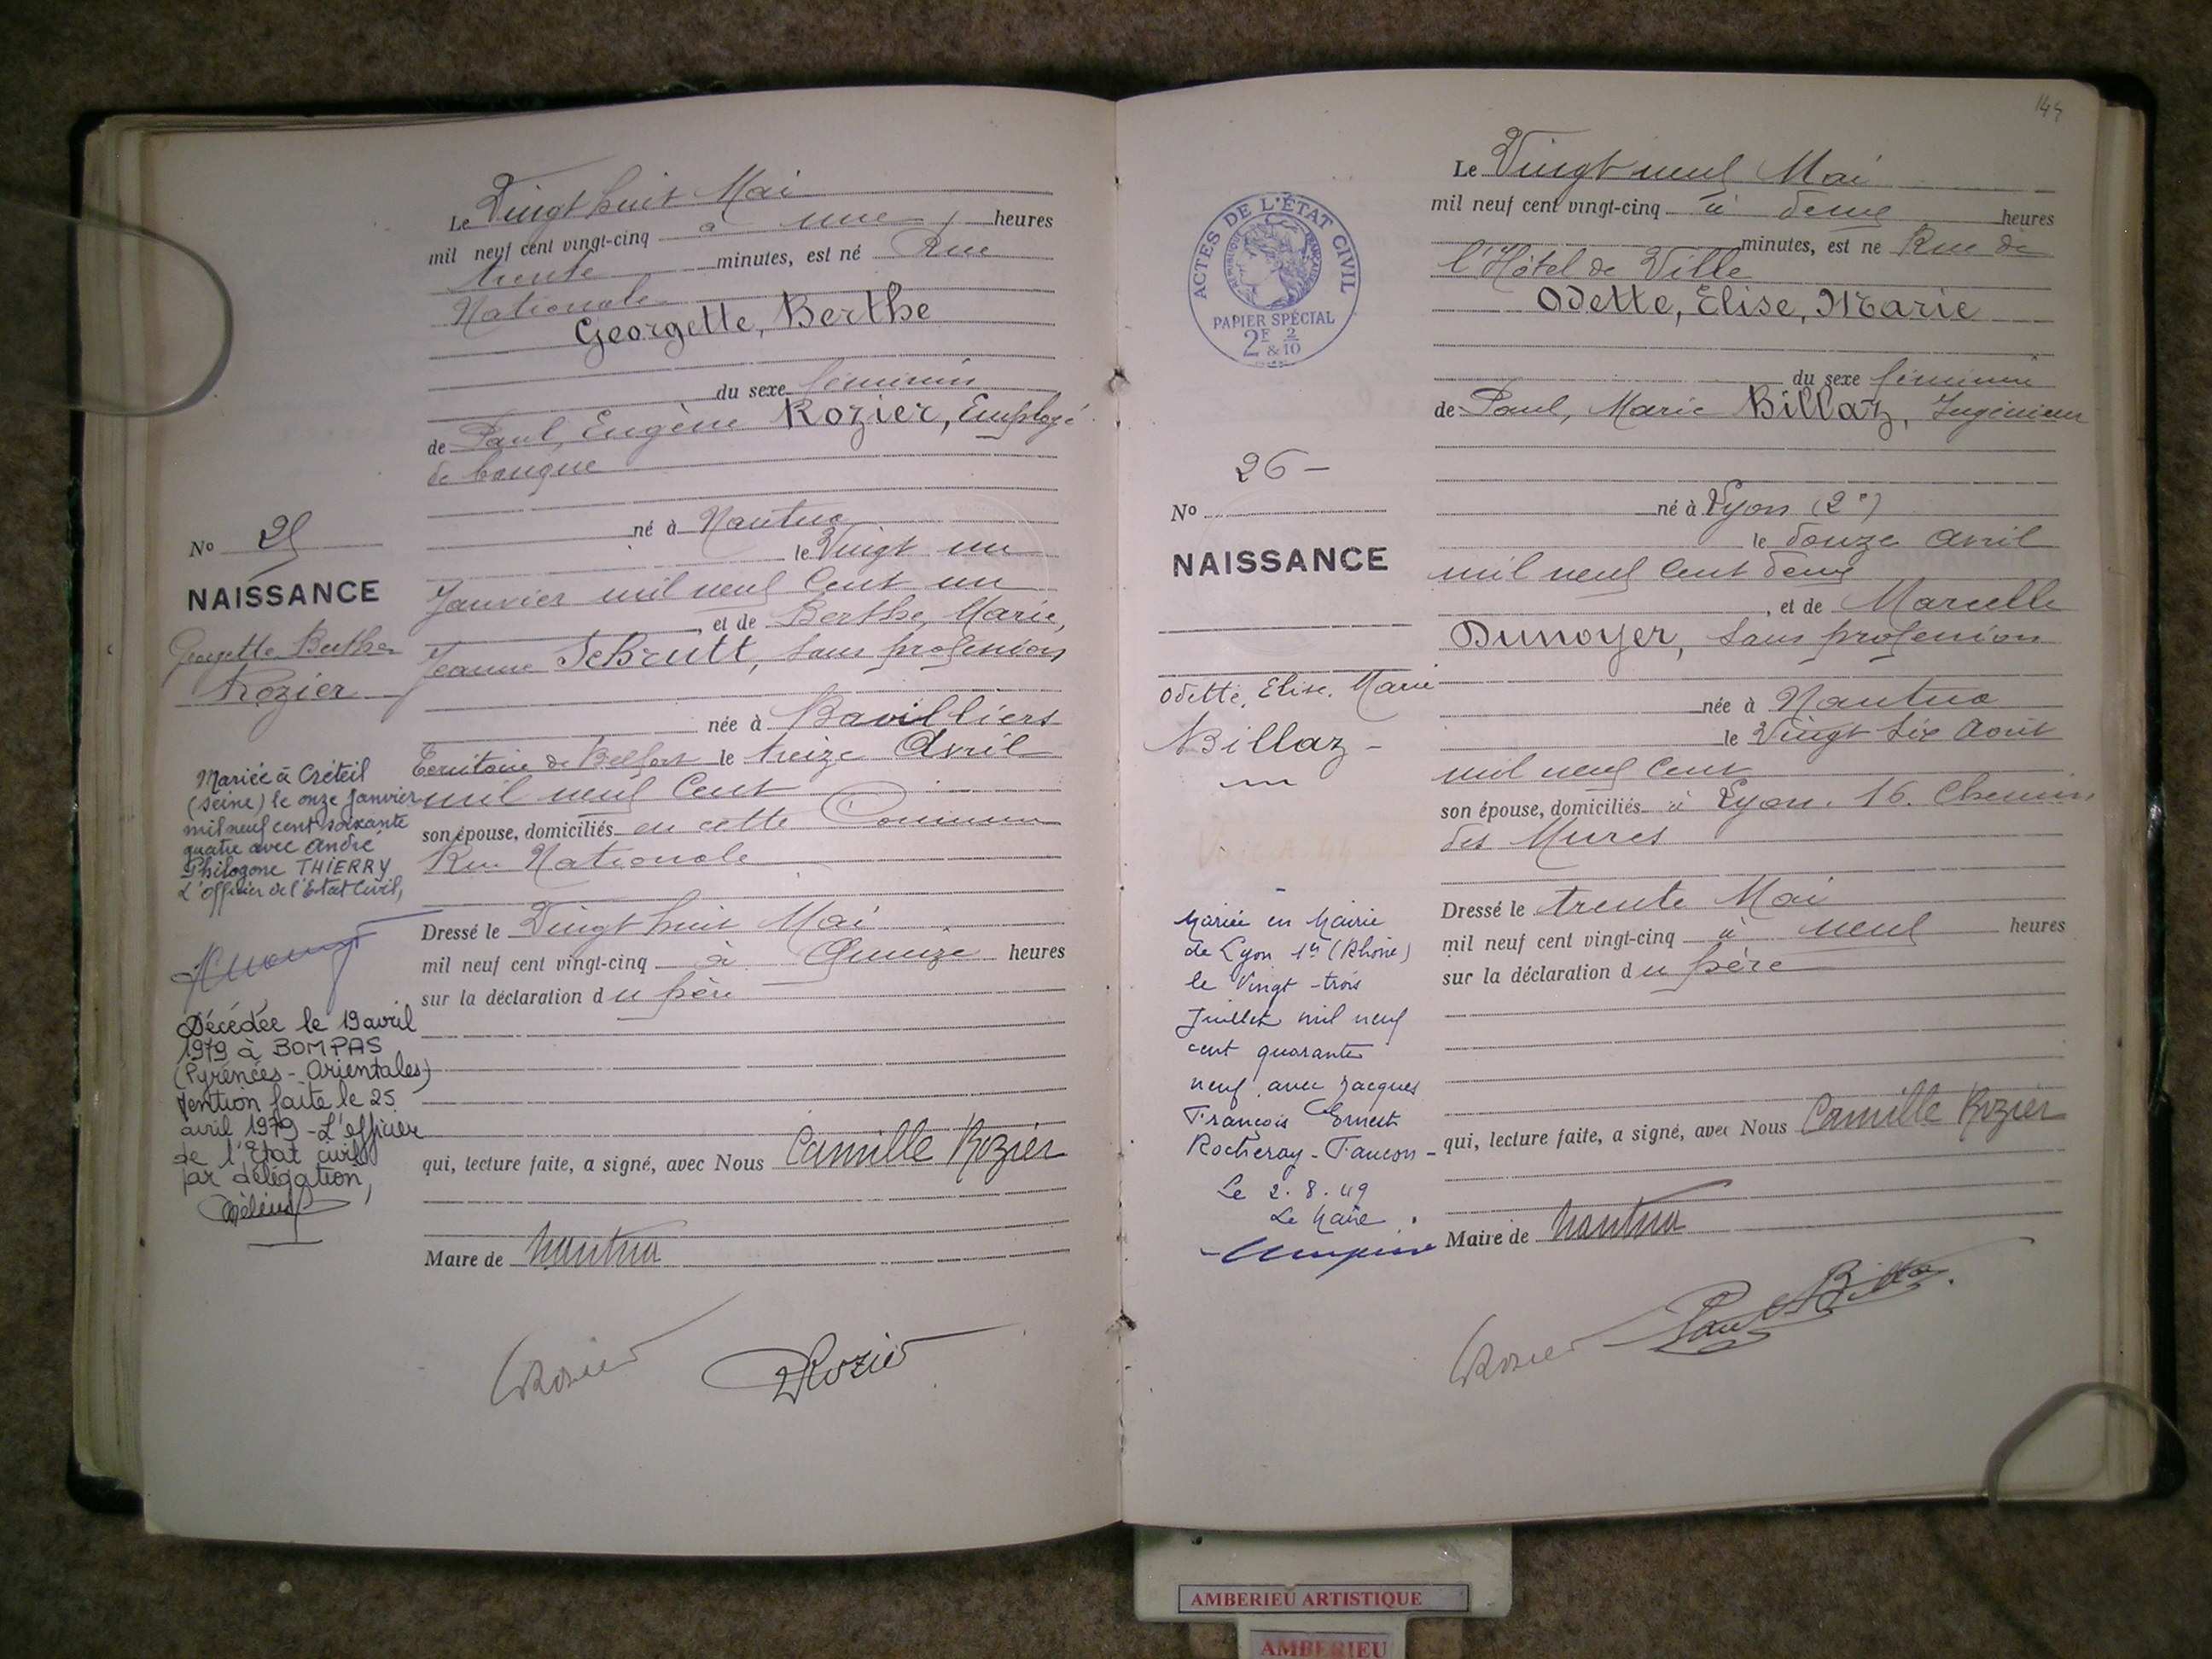 Le Vingt huit Mai
mil neuf cent vingt-cinq à une heures
trente minutes, est né Rue
Nationale
Georgette, Berthe
du sexe féminin
de Paul, Eugène Rozier, Employé
de banque
né à Nantua
le Vingt un
Janvier mil neuf Cent un
, et de Berthe, Marie,
Jeanne , sans profession
née à Bavilliers
Territoire de Belfort le treize Avril
mil neuf Cent
son épouse, domiciliés en cette Commune
Rue Nationale
Dressé le Vingt huit Mai
mil neuf cent vingt-cinq à Quinze heures
sur la déclaration du père
qui, lecture faite, a signé, avec Nous Camille Rozier
Maire de Nantua
Rozier
Rozier
No 25
NAISSANCE
Georgette Berthe
Rozier
Mariée à Créteil
(Seine) le onze Janvier
mil neuf cent soixante
quatre avec André
Philogone THIERRY
L'Officier de l'Etat Civil,
Décédée le 19 avril
1979 à BOMPAS
(Pyrénées-Orientales)
Mention faite le 25
avril 1979 - L'officier
de l'Etat civil
par délégation,
144
Le Vingt neuf Mai
mil neuf cent vingt-cinq à deux heures
minutes, est né Rue de
l'Hôtel de Ville
Odette, Elise, Marie
du sexe féminin
de Paul, Marie Billaz, Ingénieur
né à Lyon (2e)
le douze avril
mil neuf Cent deux
, et de Marcelle
Dunoyer, sans profession
née à Nantua
le Vingt six Août
mil neuf Cent
son épouse, domiciliés à Lyon. 16. Chemin
des Mures
Dressé le trente Mai
mil neuf cent vingt-cinq à neuf heures
sur la déclaration du père
qui, lecture faite, a signé, avec Nous Camille Rozier
Maire de Nantua
Rozier
Paul Billaz
ACTES DE L'ÉTAT CIVIL
RÉPUBLIQUE FRANÇAISE
PAPIER SPÉCIAL
2F & 2/10
26 -
No
NAISSANCE
Odette, Elise, Marie
Billaz -
Mariée en Mairie
de Lyon 1er (Rhône)
le Vingt-trois
Juillet mil neuf
cent quarante
neuf avec Jacques
François Ernest
Rocheray-Faucon -
Le 2.8.49
Le Maire
AMBERIEU ARTISTIQUE
AMBERIEU